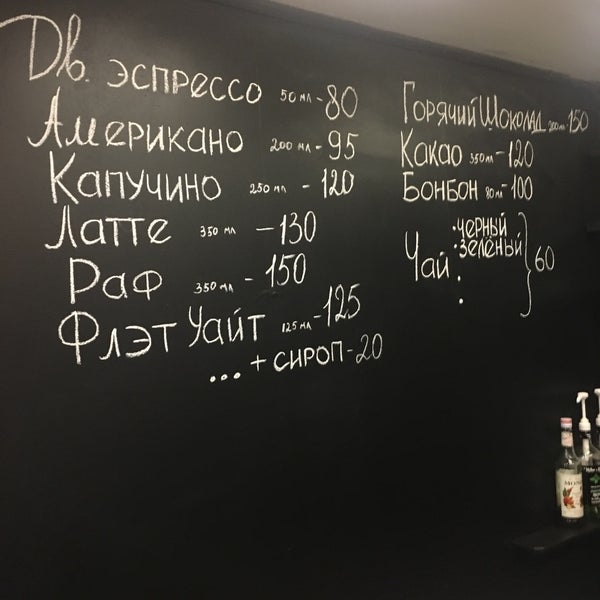 Дв. эспрессо 50 мл - 80
Американо 200 мл - 95
Капучино 250 мл - 120
Латте 350 мл - 130
Раф 350 мл - 150
Флэт Уайт 125 мл - 125
... + сироп - 20
Горячий Шоколад 200 мл - 150
Какао 350 мл - 120
Бонбон 80 мл - 100
Чай
• черный
• зелёный
60
MONIN